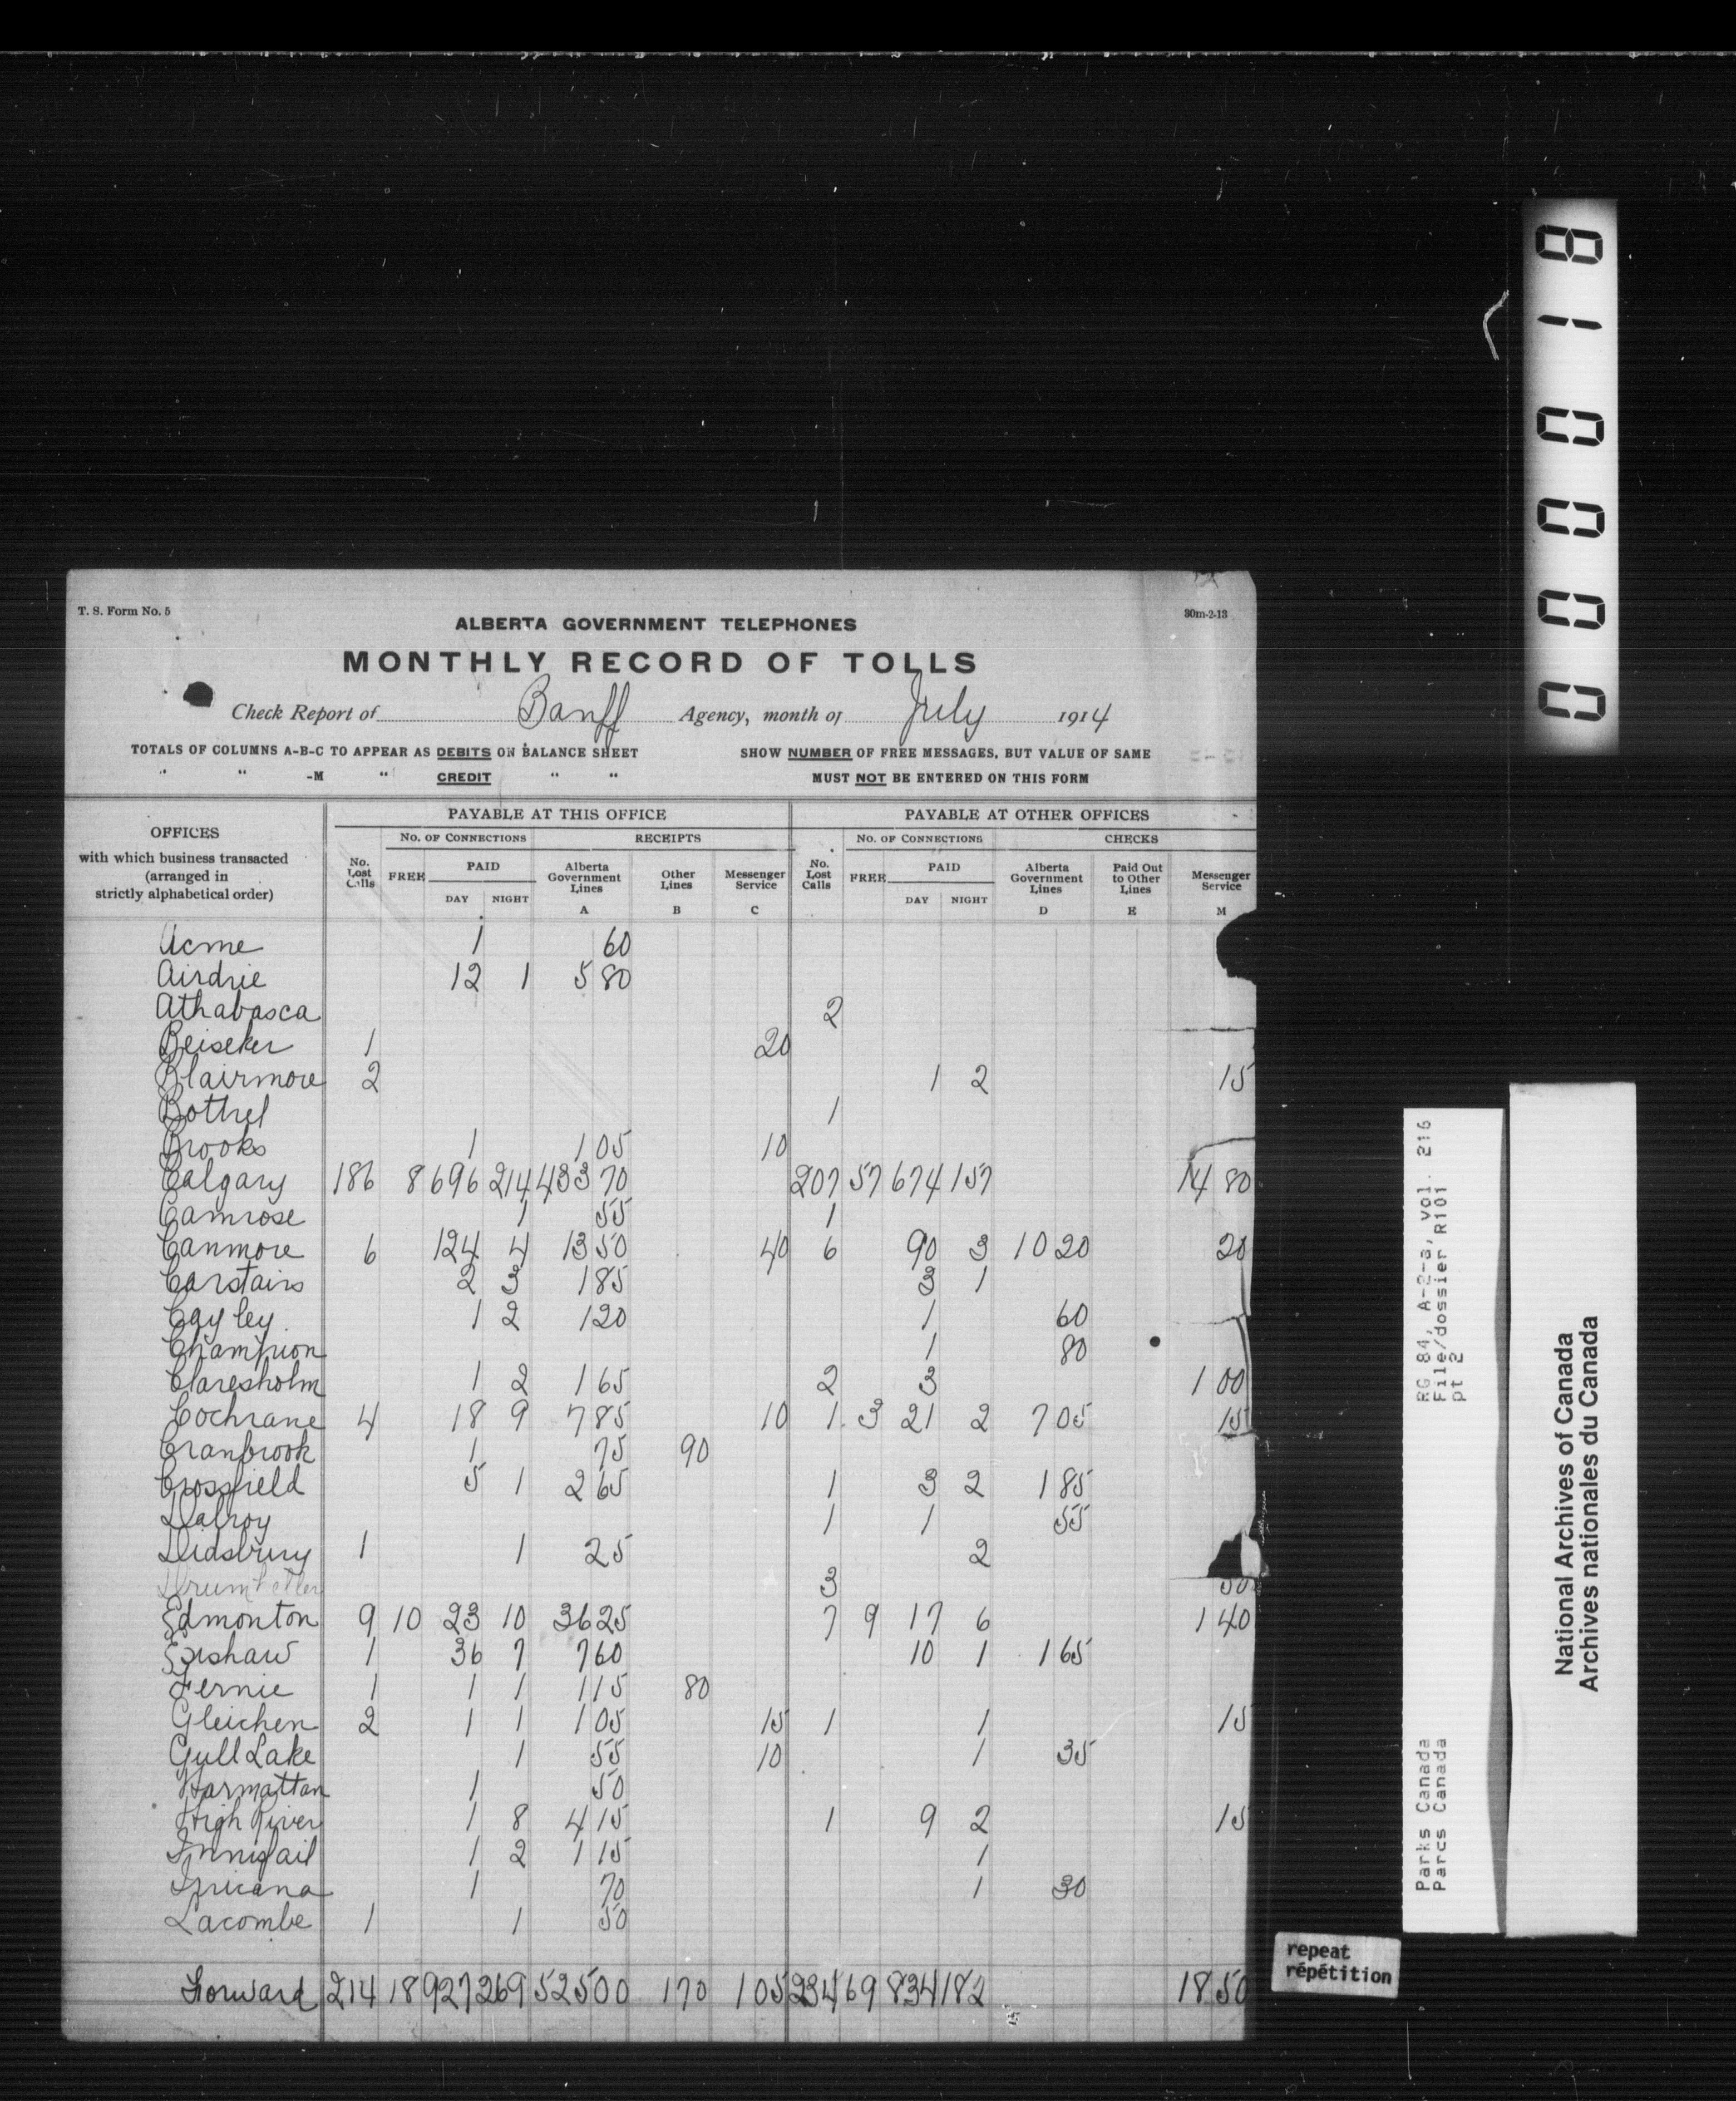 T. S. Form No. 5
30m-2-13
ALBERTA GOVERNMENT TELEPHONES
MONTHLY RECORD OF TOLLS
Check Report of Banff Agency, month of July 1914
TOTALS OF COLUMNS A-B-C TO APPEAR AS DEBITS ON BALANCE SHEET
" " -M " CREDIT " "
SHOW NUMBER OF FREE MESSAGES, BUT VALUE OF SAME
MUST NOT BE ENTERED ON THIS FORM
OFFICES
with which business transacted
(arranged in
strictly alphabetical order)
PAYABLE AT THIS OFFICE
PAYABLE AT OTHER OFFICES
No. OF CONNECTIONS RECEIPTS No. OF CONNECTIONS CHECKS
No. Lost Calls FREE PAID DAY NIGHT Alberta Government Lines A Other Lines B Messenger Service C No. Lost Calls FREE PAID DAY NIGHT Alberta Government Lines D Paid Out to Other Lines E Messenger Service M
Acme 1 60
Airdrie 12 1 5 80
Athabasca 2
Beiseker 1 20
Blairmore 2 1 2 15
Bothel 1
Brooks 1 1 05 10
Calgary 186 8 696 214 433 70 207 57 674 157 14 80
Camrose 1 55 1
Canmore 6 124 4 13 50 40 6 90 3 10 20 20
Carstairs 2 3 1 85 3 1
Cayley 1 2 1 20 1 60
Champion 1 80
Claresholm 1 2 1 65 2 3 1 00
Cochrane 4 18 9 7 85 10 1 3 21 2 7 05 15
Cranbrook 1 75 90
Crossfield 5 1 2 65 1 3 2 1 85
Dalroy 1 1 55
Didsbury 1 1 25 2
Drumheller 3 50
Edmonton 9 10 23 10 36 25 7 9 17 6 1 40
Exshaw 1 36 7 7 60 10 1 1 65
Fernie 1 1 1 1 15 80
Gleichen 2 1 1 1 05 15 1 1 15
Gull Lake 1 55 10 1 35
Harmattan 1 50
High River 1 8 4 15 1 9 2 15
Innisfail 1 2 1 15 1
Iricana 1 70 1 30
Lacombe 1 1 50
Forward 214 18 927 269 525 00 1 70 1 05 234 69 834 182 18 50
000018
RG 84, A-2-a, vol. 216
File/dossier R101
pt 2
Parks Canada
Parcs Canada
National Archives of Canada
Archives nationales du Canada
repeat
répétition